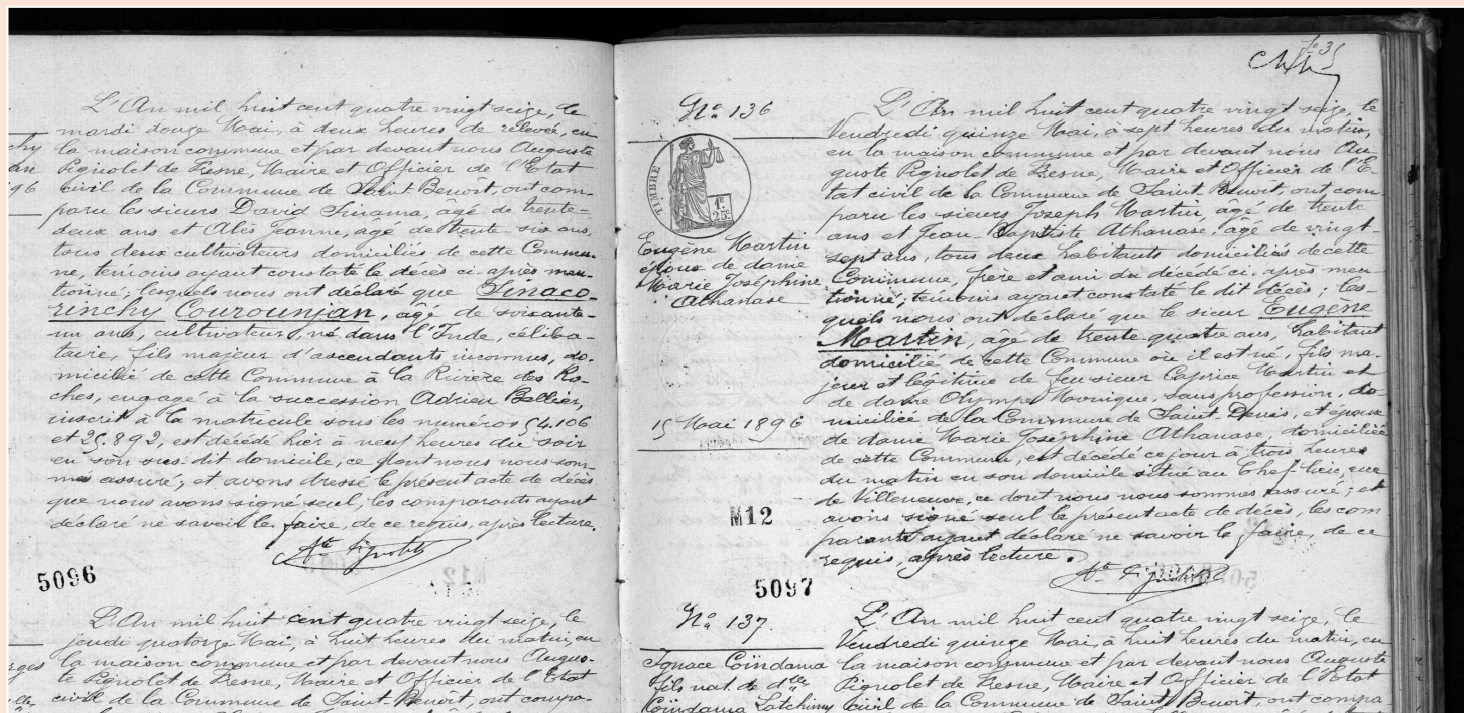 L'An mil huit cent quatre vingt seize, le
mardi douze Mai, à deux heures de relevée, en
la maison commune et par devant nous Auguste
Pignolet de Fresne, Maire et Officier de l'Etat
civil de la Commune de Saint Benoît, ont com-
paru les sieurs David Sinama, âgé de trente-
deux ans et Alès Jeanne, âgé de trente-six ans,
tous deux cultivateurs domiciliés de cette Commu-
ne, témoins ayant constaté le décès ci-après men-
tionné; lesquels nous ont déclaré que Sinaco-
unchy Courounjan, âgé de soixante-
un ans, cultivateur, né dans l'Inde, céliba-
taire, fils majeur d'ascendants inconnus, do-
micilié de cette Commune à la Rivière des Ro-
ches, engagé à la succession Adrien Bellier,
inscrit à la matricule sous les numéros 54.106
et 35.892, est décédé hier à neuf heures du soir
en son sus-dit domicile, ce dont nous nous som-
mes assuré; et avons dressé le présent acte de décès
que nous avons signé seul, les comparants ayant
déclaré ne savoir le faire, de ce requis, après lecture.
Ate Pignolet
5096
L'An mil huit cent quatre vingt seize, le
jeudi quatorze Mai, à huit heures du matin, en
la maison commune et par devant nous Augus-
te Pignolet de Fresne, Maire et Officier de l'Etat
civil de la Commune de Saint-Benoît, ont compa-
No 136
TIMBRE
1F
25c
Eugène Martin
époux de dame
Marie Joséphine
Athanase
15 Mai 1896
M12
5097
L'An mil huit cent quatre vingt seize, le
Vendredi quinze Mai, à sept heures du matin,
en la maison commune et par devant nous Au-
guste Pignolet de Fresne, Maire et Officier de l'E-
tat civil de la Commune de Saint Benoît, ont com
paru les sieurs Joseph Martin, âgé de trente
ans et Jean Baptiste Athanase, âgé de vingt-
sept ans, tous deux habitants domiciliés de cette
Commune, frère et ami du décédé ci-après men
tionné; témoins ayant constaté le dit décès; les-
quels nous ont déclaré que le sieur Eugène
Martin, âgé de trente quatre ans, habitant
domicilié de cette Commune où il est né, fils ma-
jeur et légitime de feu sieur Caprice Martin et
de dame Olympe Monique, sans profession, do-
miciliée de la Commune de Saint Denis, et époux
de dame Marie Joséphine Athanase, domiciliée
de cette Commune, est décédé ce jour à trois heures
du matin en son domicile situé au Chef-lieu, rue
de Villeneuve, ce dont nous nous sommes assuré; et
avons signé seul le présent acte de décès, les com
parants ayant déclaré ne savoir le faire, de ce
requis, après lecture.
Ate Pignolet
No 137.
Ignace Coïndama
fils nat. de dlle
Coïndama Latchimy
L'An mil huit cent quatre vingt seize, le
Vendredi quinze Mai, à huit heures du matin, en
la maison commune et par devant nous Auguste
Pignolet de Fresne, Maire et Officier de l'Etat
Civil de la Commune de Saint Benoît, ont compa